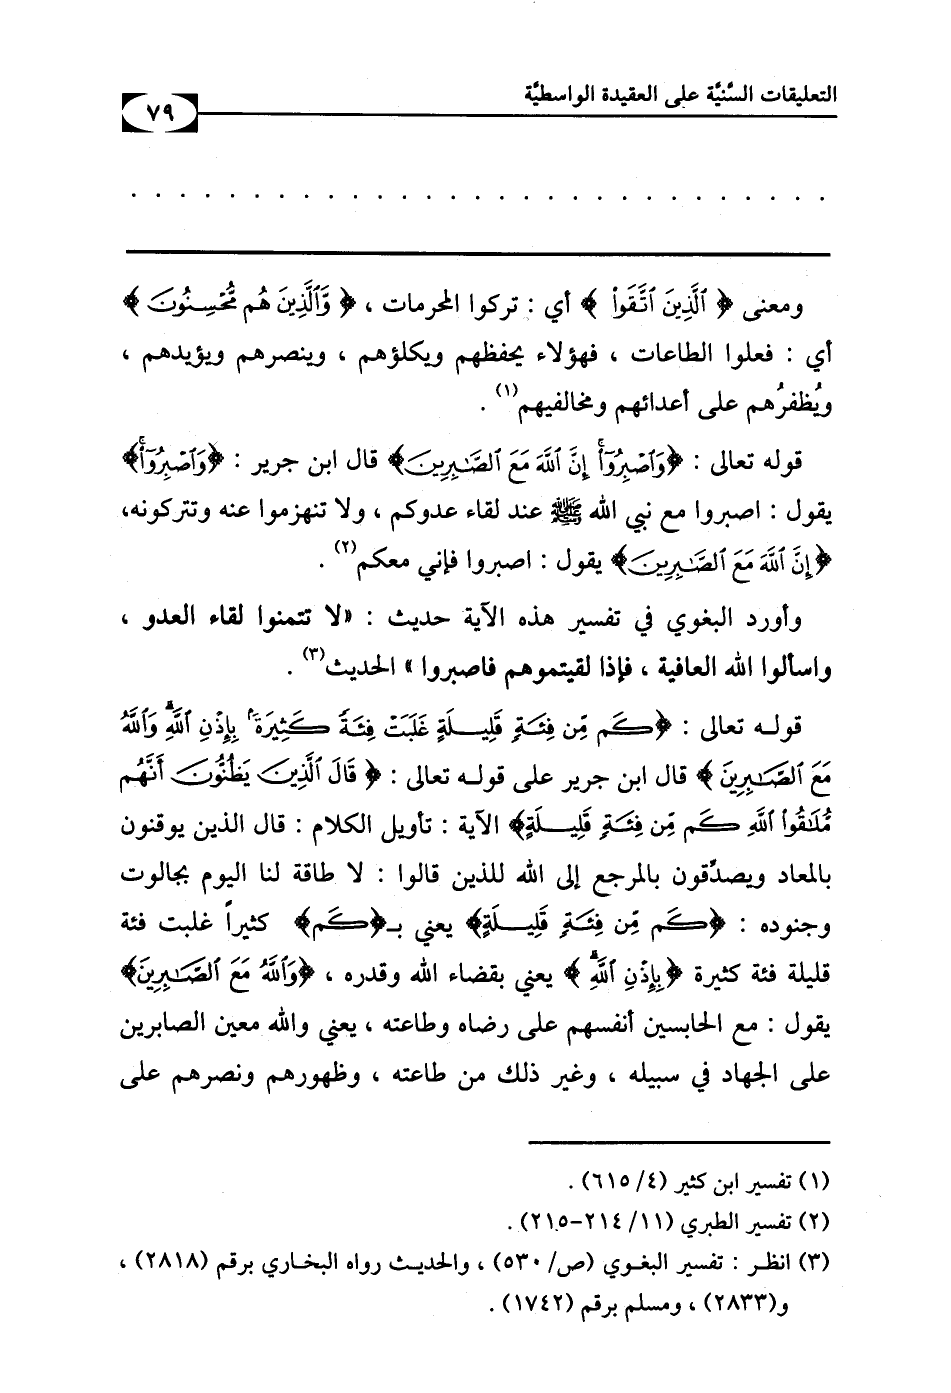 التعليقات السَّنيَّة على العقيدة الواسطيَّة
٧٩
. . . . . . . . . . . . . . . . . . . . . . . . . . . . .
ومعنى ﴿ ٱلَّذِينَ ٱتَّقَواْ ﴾ أي : تركوا المحرمات ، ﴿ وَّٱلَّذِينَ هُم مُّحْسِنُونَ ﴾
أي : فعلوا الطاعات ، فهؤلاء يحفظهم ويكلؤهم ، وينصرهم ويؤيدهم ،
ويُظفرُهم على أعدائهم ومخالفيهم(١) .
قوله تعالى : ﴿وَٱصْبِرُوٓاْۚ إِنَّ ٱللَّهَ مَعَ ٱلصَّٰبِرِينَ﴾ قال ابن جرير : ﴿وَٱصْبِرُوٓاْۚ﴾
يقول : اصبروا مع نبي الله ﷺ عند لقاء عدوكم ، ولا تنهزموا عنه وتتركونه،
﴿إِنَّ ٱللَّهَ مَعَ ٱلصَّٰبِرِينَ﴾ يقول : اصبروا فإني معكم(٢) .
وأورد البغوي في تفسير هذه الآية حديث : «لا تتمنوا لقاء العدو ،
واسألوا الله العافية ، فإذا لقيتموهم فاصبروا » الحديث(٣) .
قوله تعالى : ﴿كَم مِّن فِئَةٍ قَلِيلَةٍ غَلَبَتْ فِئَةً كَثِيرَةَۢ بِإِذْنِ ٱللَّهِۗ وَٱللَّهُ
مَعَ ٱلصَّٰبِرِينَ ﴾ قال ابن جرير على قوله تعالى : ﴿ قَالَ ٱلَّذِينَ يَظُنُّونَ أَنَّهُم
مُّلَٰقُواْ ٱللَّهِ كَم مِّن فِئَةٍ قَلِيلَةٍ﴾ الآية : تأويل الكلام : قال الذين يوقنون
بالمعاد ويصدِّقون بالمرجع إلى الله للذين قالوا : لا طاقة لنا اليوم بجالوت
وجنوده : ﴿كَم مِّن فِئَةٍ قَلِيلَةٍ﴾ يعني بـ﴿كَم﴾ كثيراً غلبت فئة
قليلة فئة كثيرة ﴿بِإِذْنِ ٱللَّهِۗ ﴾ يعني بقضاء الله وقدره ، ﴿وَٱللَّهُ مَعَ ٱلصَّٰبِرِينَ﴾
يقول : مع الحابسين أنفسهم على رضاه وطاعته ، يعني والله معين الصابرين
على الجهاد في سبيله ، وغير ذلك من طاعته ، وظهورهم ونصرهم على
(١) تفسير ابن كثير (٤/ ٦١٥) .
(٢) تفسير الطبري (١١/ ٢١٤-٢١٥) .
(٣) انظر : تفسير البغوي (ص/ ٥٣٠) ، والحديث رواه البخاري برقم (٢٨١٨) ،
و(٢٨٣٣) ، ومسلم برقم (١٧٤٢) .